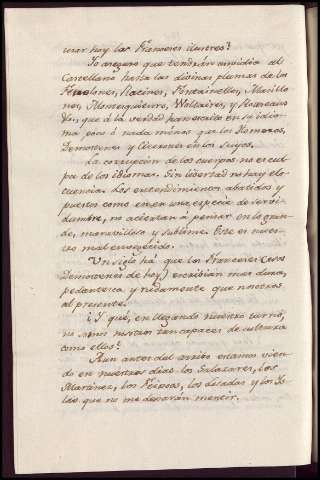 usar hoy las Franceses ilustres?
Yo aseguro que tendrán envidia al
Castellano hasta las divinas plumas de los
Fenelones, Racines, Fontainelles, Masillo
nes, Montesquieus, Woltaires, y Rosseaus
&c, que á la verdad han escrito en su idio-
ma poco ó nada menos que los Homeros,
Demostenes y Cicerones en los suyos.
La corrupcion de los cuerpos no es cul
pa de los idiomas. Sin libertad no hay elo-
cuencia. Los entendimientos abatidos y
puestos como en una especie de servi-
dumbre, no aciertan á pensar en lo gran-
de, maravilloso y sublime. Este es nues-
tro mal envegecido.
Un siglo ha que los Franceses (esos
Demostenes de hoy) escribian mas dura,
pedantesca y rudamente que nosotros
al presente.
¿Y qué, en llegando nuestro turno,
no somos nosotros tan capaces de cultura
como ellos?
Aun antes del arribo estamos vien-
do en nuestros dias los Salazares, los
Martinez, los Feijoos, los
las que no me dexarán mentir.